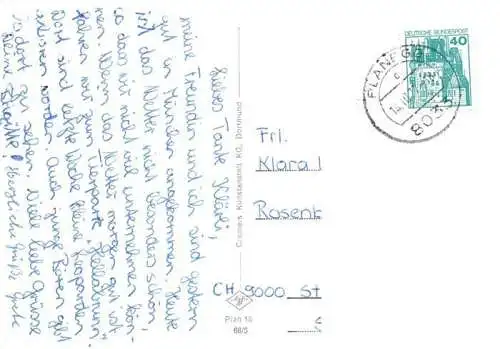 Liebes Tante Klärli,
meine Freundin und ich sind gestern
gut in München angekommen. Heute
ist das Wetter nicht besonders schön,
so dass wir nicht viel unternehmen kön-
nen. Wenn das Wetter morgen gut ist
fahren wir zum Tierpark "Hellabrunn".
Dort sind letzte Woche kleine Leoparden
geboren worden. Auch junge Bären gibt
es dort zu sehen. Viele liebe Grüsse
Deine Brigitte! Herzliche Grüße
Cramers Kunstanstalt KG, Dortmund
Plan 10
68/5
DEUTSCHE BUNDESPOST
40
PLANEGG
8033
Frl.
Klara
Rosenb
CH 9000 St